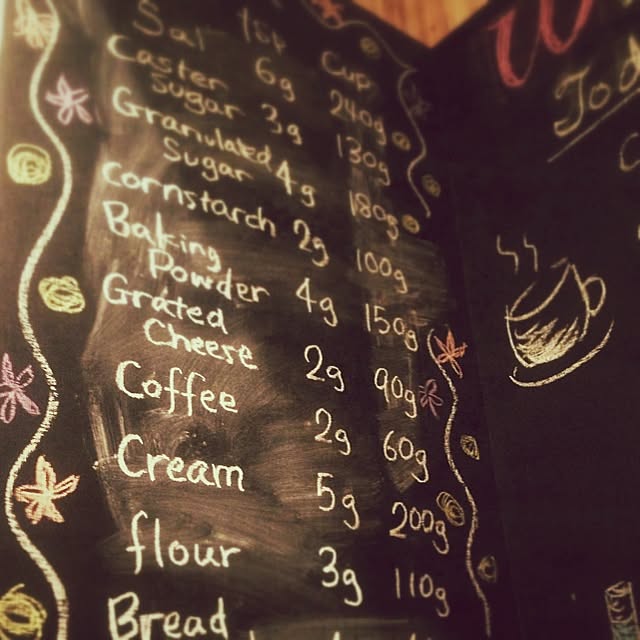 Salt 6g 240g
Cup
Caster
Sugar 3g 130g
Granulated
Sugar 4g 180g
Cornstarch 2g 100g
Baking
Powder 4g 150g
Grated
Cheese 2g 90g
Coffee 2g 60g
Cream 5g 200g
flour 3g 110g
Bread
Tod